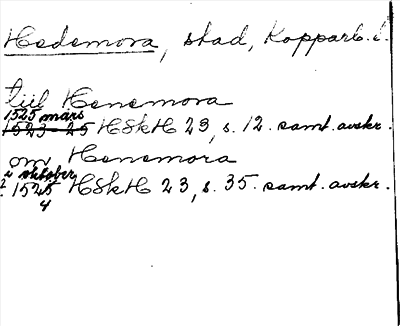 Hedemora, stad, Kopparb. l.
till Henemora
1525 mars
1523-25 HSkH 23, s. 12. samt. avskr.
om Henemora
oktober
1525 HSkH 23, s. 35. samt. avskr.
4